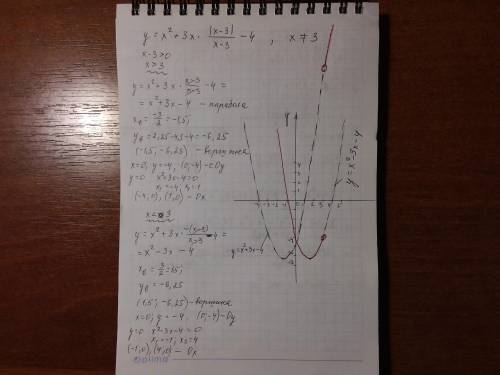 y = x² + 3x · |x-3|/(x-3) - 4 , x ≠ 3
x-3>0
x>3
y = x² + 3x · (x-3)/(x-3) - 4 =
= x² + 3x - 4 - парабола
x_в = -3/2 = -1,5;
y_в = 2,25 - 4,5 - 4 = -6,25
(-1,5; -6,25) - вершина
x=0; y=-4, (0;-4) - Oy
y=0 x²+3x-4=0
x₁=-4; x₂=1
(-4;0), (1;0) - Ox
x < 3
y = x² + 3x · -(x-3)/(x-3) - 4 =
= x² - 3x - 4
x_в = 3/2 = 1,5;
y_в = -6,25
(1,5; -6,25) - вершина
x=0; y=-4. (0;-4) - Oy
y=0 x²-3x-4=0
x₁=-1; x₂=4
(-1;0), (4;0) - Ox
y
y=x²-3x-4
y=x²+3x-4